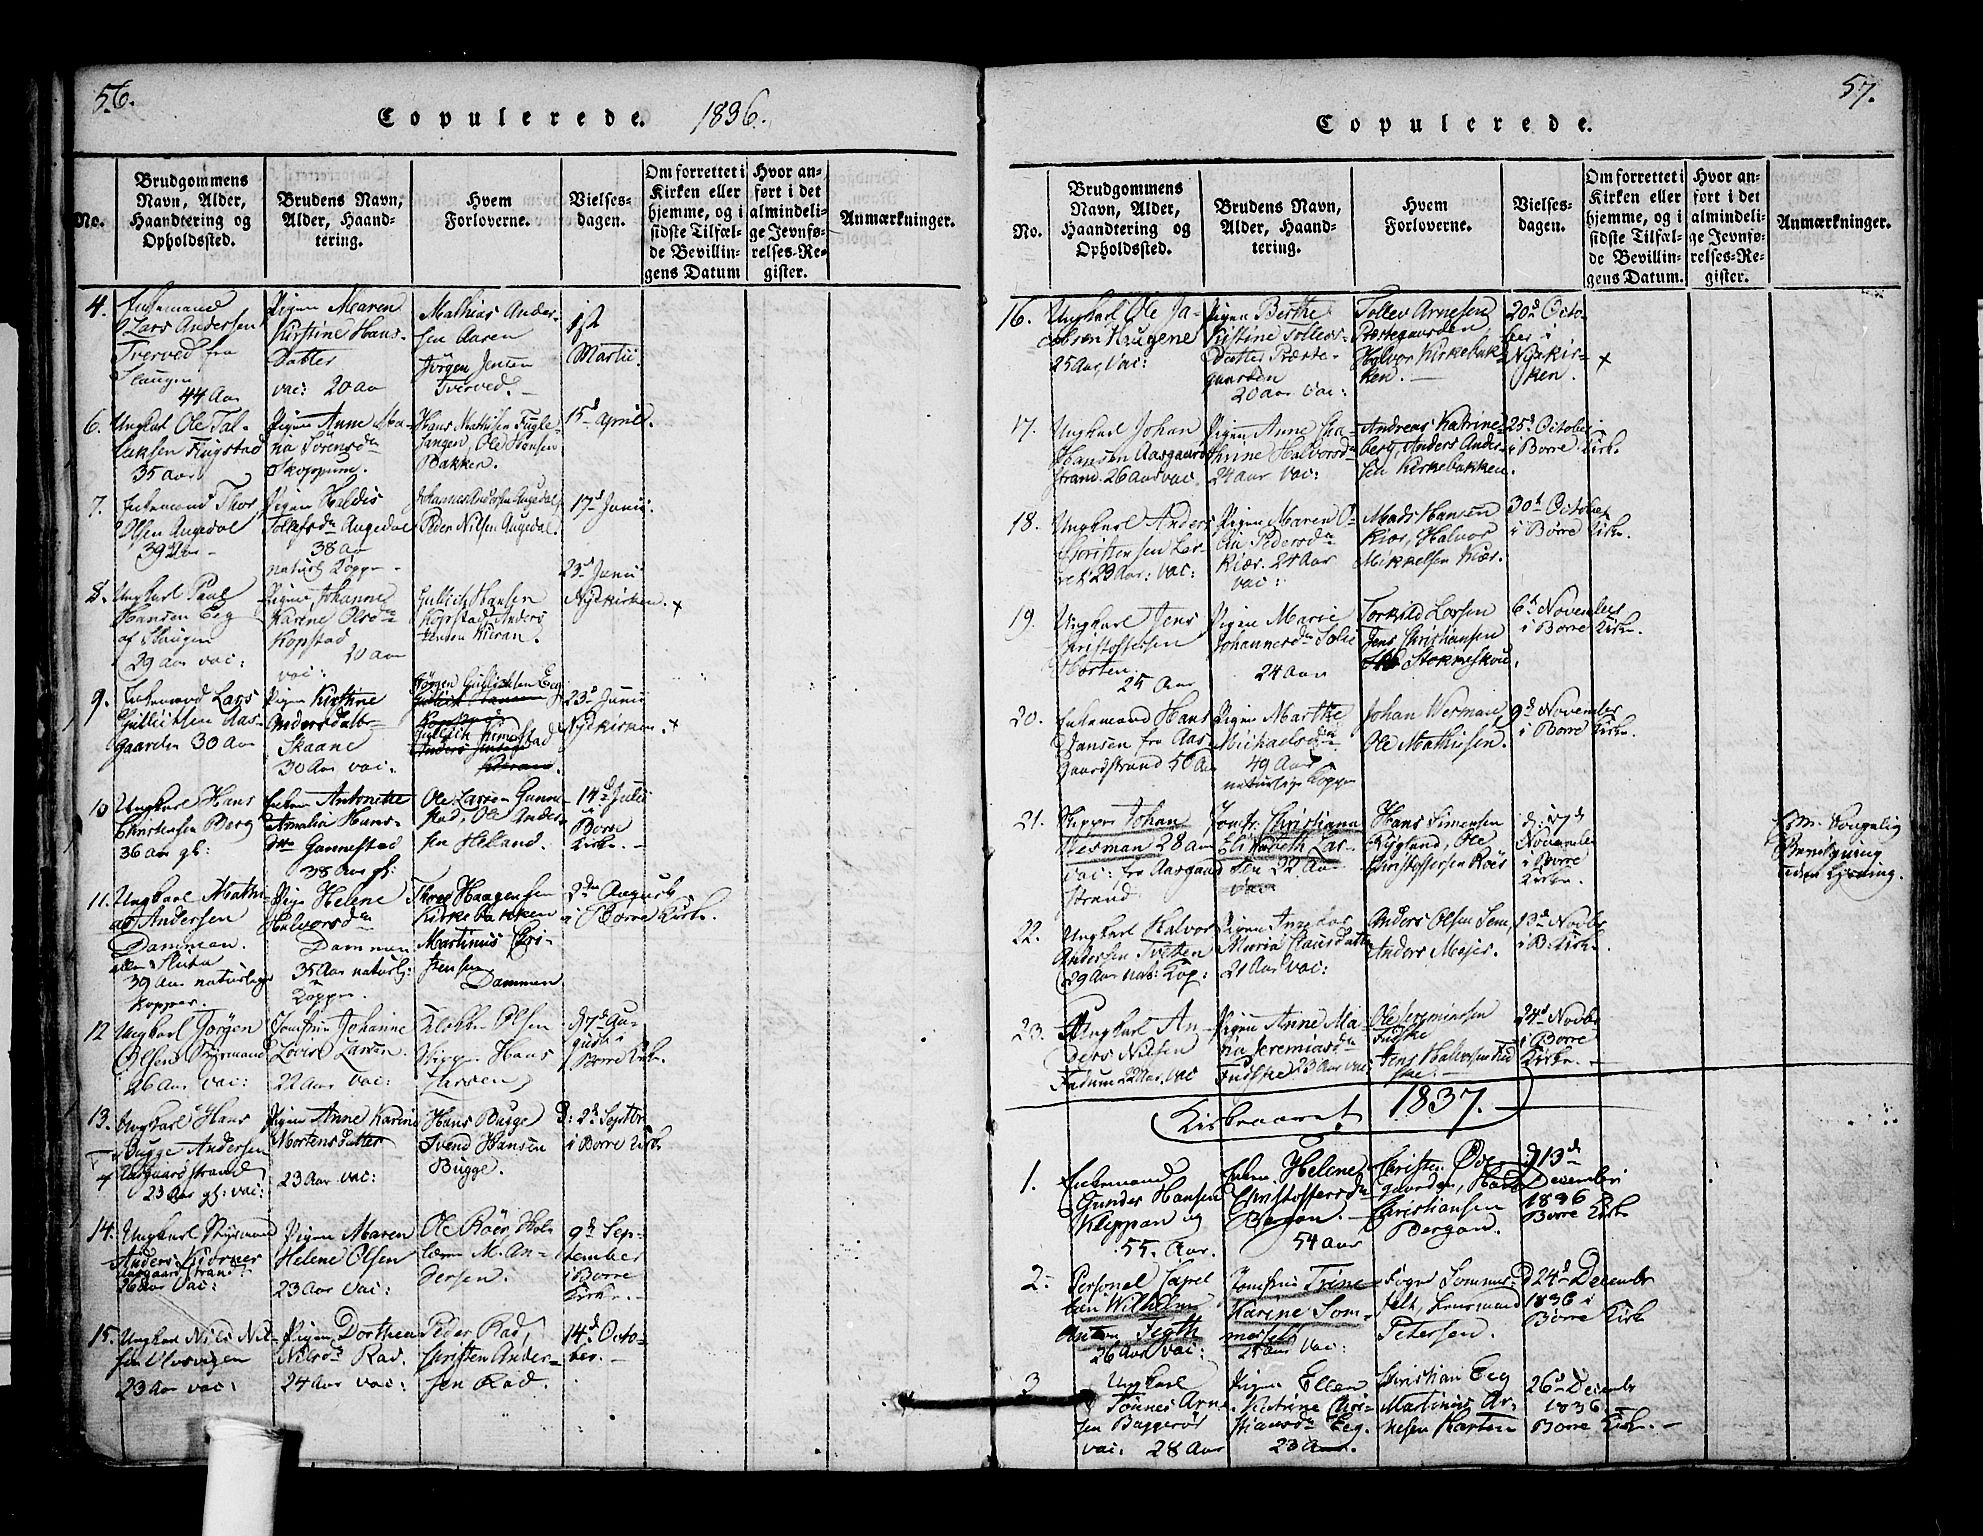 56.
Copulerede. 1836.
No.
Brudgommens
Navn, Alder,
Haandtering og
Opholdssted.
Brudens Navn,
Alder, Haand-
tering.
Hvem
Forloverne.
Vielses-
dagen.
Om forrettet i
Kirken eller
hjemme, og i
sidste Tilfæl-
de Bevillin-
gens Datum
Hvor an-
ført i det
almindeli-
ge Jevnfø-
relses-Re-
gister.
Anmærkninger.
4.
Enkemand
Lars Andersen
Tverved fra
Slaugen
44 Aar
Pigen Maren
Kirstine Hans-
Datter
vac: 20 aar
Mathias Ander-
sen Aaren
Jørgen Jensen
Tverved.
1st
Martii
6.
Ungkarl Ole Tal-
laksen
35 aar
Pigen Anne Ma-
ria Sørensdn
Skoppum.
Hans Mathisen Fugle-
sangen, Ole Hansen
Bakken.
15d april.
7.
Enkemand Thor
Olsen Augedal
39 Aar
Pigen
Augedal
38 Aar
naturl. Kopper
Johannes Andersen Augedal
Peder Nilsen Augedal.
17d Junii
8.
Ungkarl Paul
Hansen Eeg
af Slaugen
29 aar vac:
Pigen Johanne
Karine Olsdn
Kopstad
20 aar
vac:
Gullich Hansen
Kopstad, Anders
Jensen Kieran.
23d Junii
Nykirken. +
9.
Enkemand Lars
Gullichsen Aas-
gaarden 30 Aar
Pigen Kirstine
Andersdatter
Skaane
30 Aar vac:
Jørgen Gullichsen Eeg
23d Junii
Nykirken. +
10
Ungkarl Hans
Christensen Berg
36 aar gl:
Enken Antonette
Amalia Hans-
dtr Gannestad
38 Aar gl:
Ole Larsen Ganne-
stad, Ole Ander-
sen Helland.
14d Julii
i
Borre
Kirke.
11.
Ungkarl Mathi-
as Andersen
Dammen.
39 Aar naturlige
Kopper.
Pige Helene
Halvorsdn
Dammen
35 Aar naturl:
Kopper.
Thor Haagensen
Kirkebakken
Martinus Chri-
stensen
Dammen
2den August
i Borre Kirke.
12
Ungkarl Jørgen
Olsen Styrmand
26 Aar vac:
Jomfrue Johanne
Lovise Larsen.
22 Aar vac:
Klokker Olsen
Skipper Hans
Larsen
d 7d Au-
gust i
Borre Kirke.
13.
Ungkarl Hans
Bugge Andersen
Aasgaardstrand
23 Aar gl: vac:
Pigen Anne Karine
Mortensdatter
23 Aar vac:
Hans Bugge
Svend Hansen
Bugge.
D: 2d Septbr
i Borre Kirke
14.
Ungkarl Styrmand
Anders Kiørner
Aasgaardstrand
26 Aar vac:
Pigen Maren
Helene Olsen
23 Aar vac:
Ole Röer, Hol-
M. An-
dersen.
9d Sep-
tember
i Borre
Kirke.
15.
Ungkarl Nils Nil-
sen Ulvsvigen
23 Aar vac:
Pigen Dorthea
Nilsdn Rad.
24 Aar vac:
Peder Rad,
Christen Ander-
sen Rad.
14d Octo-
ber.
57.
Copulerede.
No.
Brudgommens
Navn, Alder,
Haandtering og
Opholdssted.
Brudens Navn,
Alder, Haand-
tering.
Hvem
Forloverne.
Vielses-
dagen.
Om forrettet i
Kirken eller
hjemme, og i
sidste Tilfæl-
de Bevillin-
gens Datum.
Hvor an-
ført i det
almindeli-
ge Jevnfø-
relses-Re-
gister.
Anmærkninger.
16.
Ungkarl Ole Ja-
cobsen Haugene
25 Aar, vac:
Pigen Berthe
Kistine Tollevs-
Datter Præste-
gaarden
20 aar vac:
Tollev Arnesen
Præstegaarden,
Halvor Kirkebak-
ken.
20d Octo-
ber i
Nykir-
ken. +
17.
Ungkarl Johan
Hansen Aasgaard-
strand. 26 Aar vac.
Pigen Anne Cha-
thrine Halvorsdn
24 aar vac:
Andreas Katrine-
berg, Anders Ander-
sen Kirkebakken.
25d October
i Borre Kirke
18.
Ungkarl Anders
Christensen
23 Aar: vac:
Pigen Maren
Pedersdn
Kiær. 24 aar
vac:
Mads Hansen
Kiær, Halvor
Mikkelsen Kiær.
30d October
i Borre Kirke.
19.
Ungkarl Jens
Christoffersen
Horten.
25 Aar
Pigen Marie
Johannesdn
24 aar
Torkild Larsen
Jens Christiansen
6d November
i Borre Kirke.
20.
Enkemand Hans
Jansen fra Aas-
gaardstrand 50 Aar
Pigen Marthe
Michaelsdn
49 Aar
naturlige Kopper
Johan Wesman
Ole Mathisen.
9d November
i Borre Kirke.
21.
Skipper Johan
Wesman 28 aar
vac: fra Aasgaard-
strand
Jomfr. Christiana
Elisabeth Lar-
sen 22 Aar
vac
Hans Simensen
Rygland, Ole
Christoffersen Röer
d: 17d
November
i Borre
Kirke.
Efter Kongelig
Bevilgning
uden Lysning.
22.
Ungkarl Halvor
Andersen Tvetten
29 Aar nat: Kop:
Pigen
Maria Clausdatter
21 Aar vac:
Anders Olsen
Anders Majer.
13d Novbr
i B: Kirke.
23.
Ungkarl An-
ders Nielsen
22 Aar. vac
Pigen Anne Ma-
ria Jeremiasdn
Fudske 23 Aar vac:
Ole Jeremiasen
Fudske
Jens Halvorsen Fud-
ske.
24d Novbr
i Borre
Kirke.
Kirkeaaret 1837.
1.
Enkemand
Gunder Hansen
Kleppan
55. Aar.
Enken Helene
Christoffersdn
Bergan.
54 aar
Christen Øde-
gaarden, Hans
Christiansen
Bergan.
d 13de
December
1836
Borre Kirke
2.
Personel Capel-
lan Wilhelm
Anton Fegth
26 Aar vac:
Jomfrue Trine
Karine Som-
merfelt
21 aar vac:
Foged Sommer-
felt, Lensmand
Petersen.
D 24d December
1836 i
Borre Kirke
3
Ungkarl
Tönnes Arne-
sen Baggeröd
vac: 28 Aar
Pigen Ellen
Katrine Chri-
stiansdn Eeg.
23 Aar.
Christian Eeg
Martinus Ar-
nesen Horten
26d December
1836.
Borre Kirke.